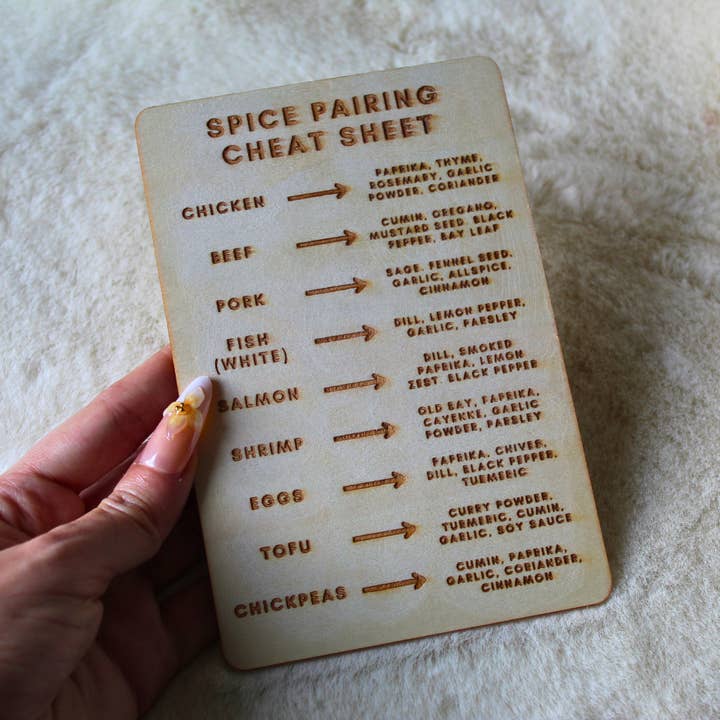 SPICE PAIRING
CHEAT SHEET
CHICKEN
PAPRIKA, THYME,
ROSEMARY, GARLIC
POWDER, CORIANDER
BEEF
CUMIN, OREGANO,
MUSTARD SEED. BLACK
PEPPER, BAY LEAF
PORK
SAGE. FENNEL SEED.
GARLIC, ALLSPICE,
CINNAMON
FISH
(WHITE)
DILL, LEMON PEPPER,
GARLIC, PARSLEY
SALMON
DILL, SMOKED
PAPRIKA, LEMON
ZEST. BLACK PEPPER
SHRIMP
OLD BAY, PAPRIKA,
CAYENNE, GARLIC
POWDER, PARSLEY
EGGS
PAPRIKA, CHIVES,
DILL, BLACK PEPPER,
TURMERIC
TOFU
CURRY POWDER,
TURMERIC, CUMIN,
GARLIC, SOY SAUCE
CHICKPEAS
CUMIN, PAPRIKA,
GARLIC, CORIANDER,
CINNAMON